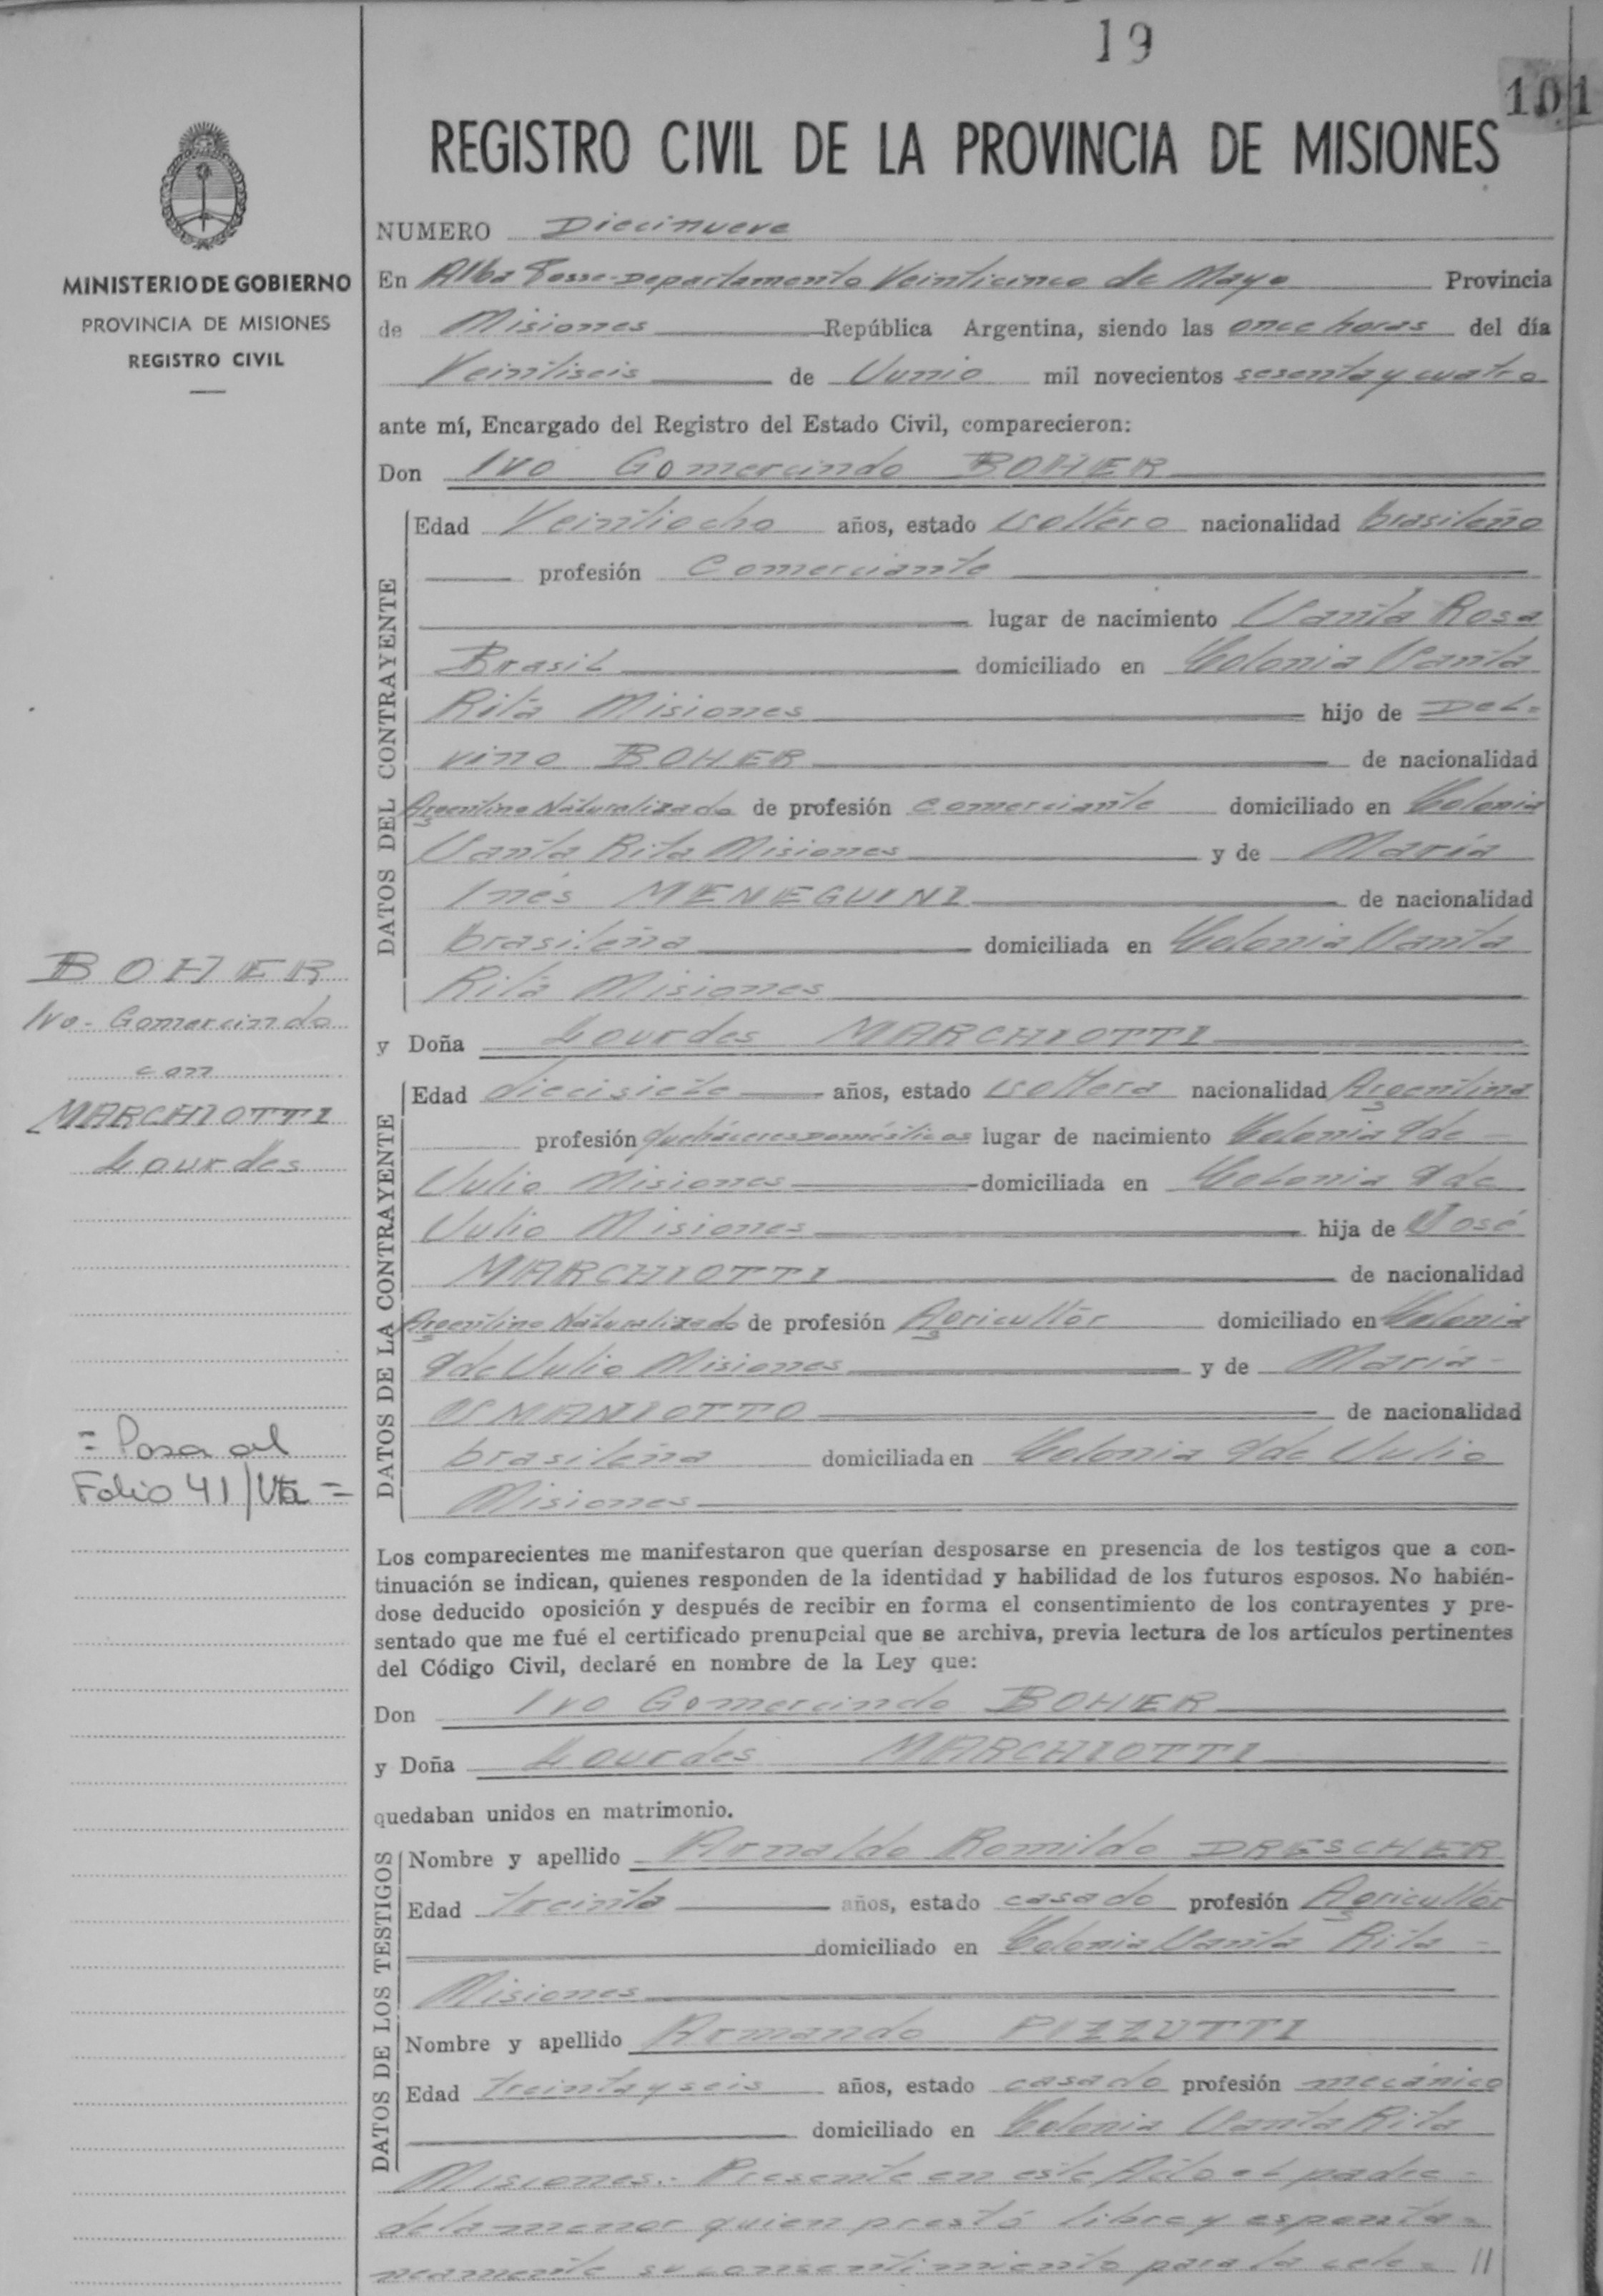 19
101
REGISTRO CIVIL DE LA PROVINCIA DE MISIONES
MINISTERIO DE GOBIERNO
PROVINCIA DE MISIONES
REGISTRO CIVIL
NUMERO Diecinueve
En Alba Posse-Departamento Veinticinco de Mayo Provincia
de Misiones República Argentina, siendo las once horas del día
Veintiseis de Junio mil novecientos sesenta y cuatro
ante mí, Encargado del Registro del Estado Civil, comparecieron:
Don Ivo Gomercindo BOHER
DATOS DEL CONTRAYENTE
Edad Veintiocho años, estado soltero nacionalidad brasileño
profesión Comerciante
lugar de nacimiento Santa Rosa
Brasil domiciliado en Colonia Santa
Rita Misiones hijo de Del-
vino BOHER de nacionalidad
Argentino Naturalizado de profesión comerciante domiciliado en Colonia
Santa Rita Misiones y de María
Inés MENEGUINI de nacionalidad
brasileña domiciliada en Colonia Santa
Rita Misiones
BOHER
Ivo-Gomercindo
con
MARCHIOTTI
Lourdes
y Doña Lourdes MARCHIOTTI
DATOS DE LA CONTRAYENTE
Edad diecisiete años, estado soltera nacionalidad Argentina
profesión quehaceres domésticos lugar de nacimiento Colonia 9 de
Julio Misiones domiciliada en Colonia 9 de
Julio Misiones hija de José
MARCHIOTTI de nacionalidad
Argentino Naturalizado de profesión Agricultor domiciliado en Colonia
9 de Julio Misiones y de María
SMANIOTTO de nacionalidad
brasileña domiciliada en Colonia 9 de Julio
Misiones
= Pasa al
Folio 41/Vta =
Los comparecientes me manifestaron que querían desposarse en presencia de los testigos que a con-
tinuación se indican, quienes responden de la identidad y habilidad de los futuros esposos. No habién-
dose deducido oposición y después de recibir en forma el consentimiento de los contrayentes y pre-
sentado que me fué el certificado prenupcial que se archiva, previa lectura de los artículos pertinentes
del Código Civil, declaré en nombre de la Ley que:
Don Ivo Gomercindo BOHER
y Doña Lourdes MARCHIOTTI
quedaban unidos en matrimonio.
DATOS DE LOS TESTIGOS
Nombre y apellido Arnaldo Romildo DRESCHER
Edad treinta años, estado casado profesión Agricultor
domiciliado en Colonia Santa Rita -
Misiones
Nombre y apellido Armando PIZZUTTI
Edad treinta y seis años, estado casado profesión mecánico
domiciliado en Colonia Santa Rita
Misiones.- Presente en este Acto el padre -
de la menor quien prestó libre y esponta-
neamente su consentimiento para la cele- //